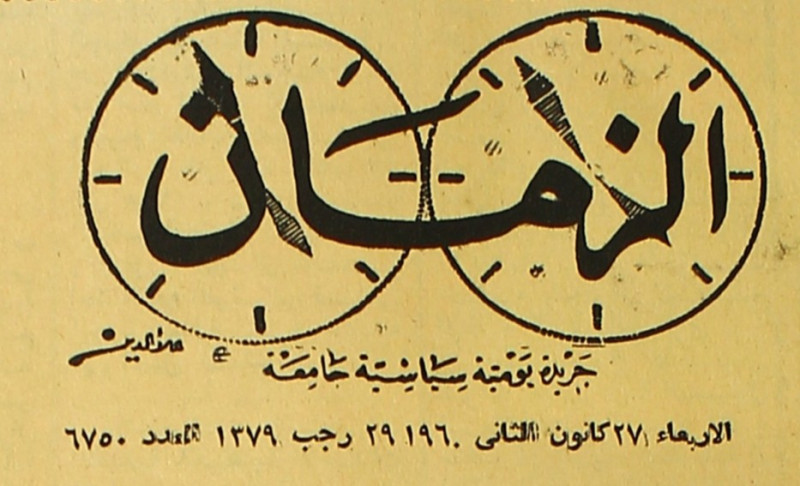 الزمان
علاء الدين
جريدة يومية سياسية جامعة
الاربعاء ٢٧ كانون الثانى ١٩٦٠ ٢٩ رجب ١٣٧٩ العدد ٦٧٥٠